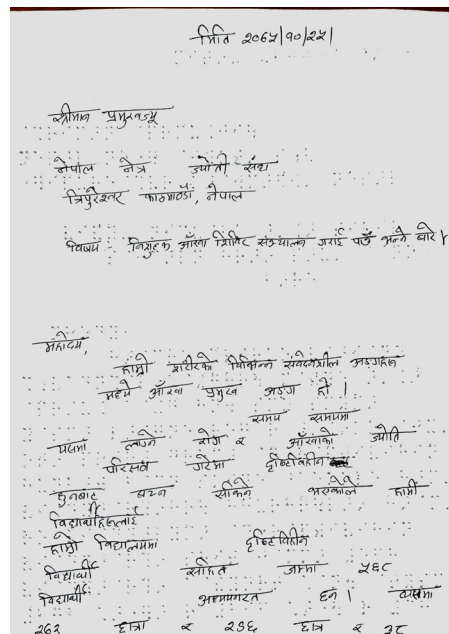 मिति २०६५|१०|२५|
श्रीमान प्रमुखज्यू
नेपाल नेत्र ज्योती संघ
त्रिपुरेश्वर काठमाडौं, नेपाल
विषय - निशुल्क आँखा शिविर सञ्चालन गराई पाउँ भन्ने बारे।
महोदय,
हाम्रो शरीरको विभिन्न संवेदनशील अङ्गहरु
मध्ये आँखा प्रमुख अङ्ग हो।
समय समयमा
यसमा लाग्ने रोग र आँखाको ज्योति
परिक्षण गरेमा दृष्टिविहीन
हुनबाट बच्न सकिने भएकोले हामी
विद्यार्थीहरुलाई
हाम्रो विद्यालयमा दृष्टिविहीन
विद्यार्थी सहित जम्मा ५६८
विद्यार्थी अध्ययनरत छन्। जसमा
२६२ छात्रा र २६६ छात्र र ३८